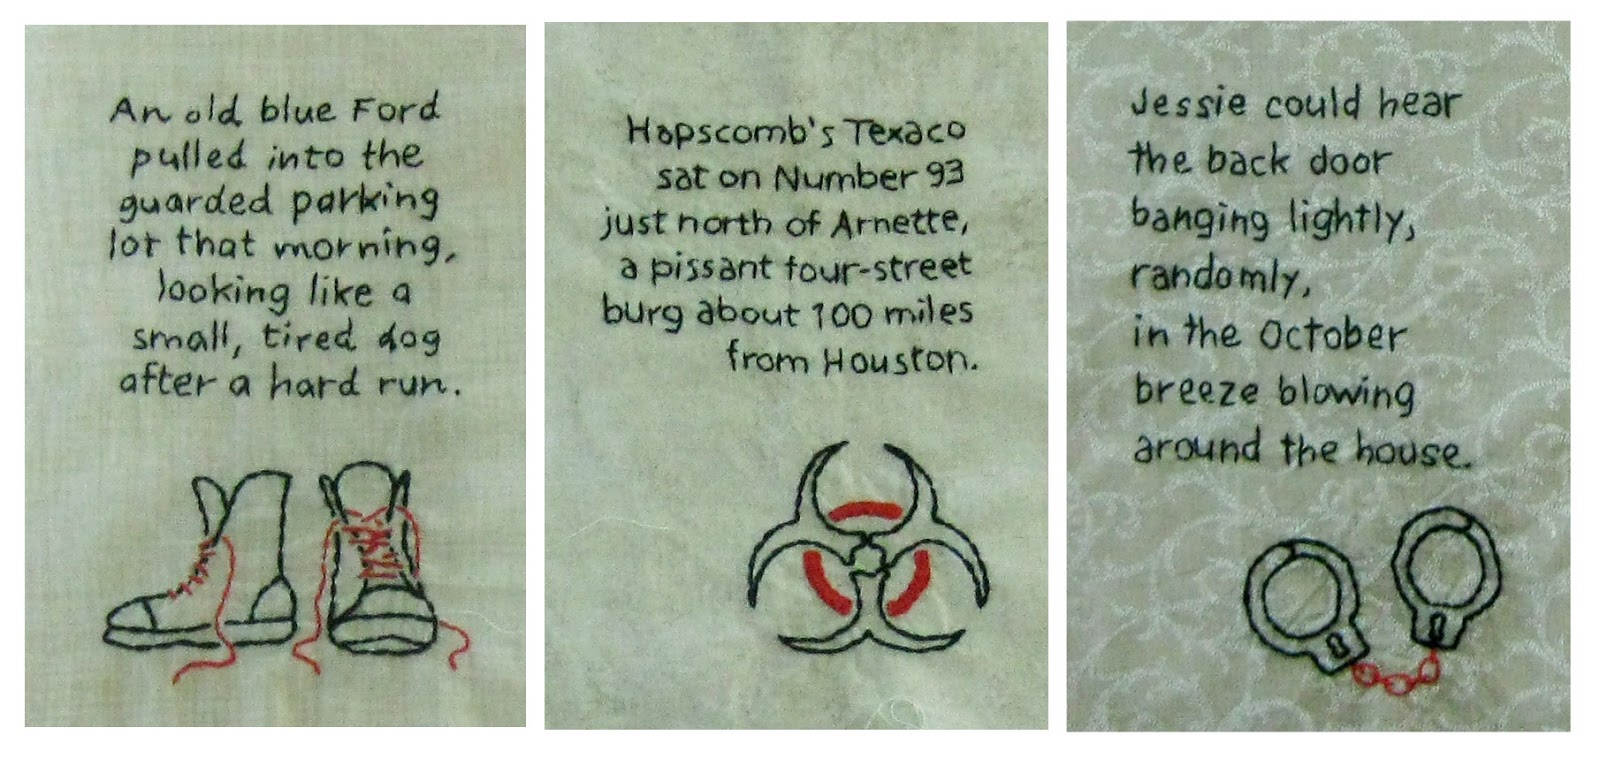 An old blue Ford
pulled into the
guarded parking
lot that morning,
looking like a
small, tired dog
after a hard run.
Hapscomb's Texaco
sat on Number 93
just north of Arnette,
a pissant four-street
burg about 100 miles
from Houston.
Jessie could hear
the back door
banging lightly,
randomly,
in the October
breeze blowing
around the house.